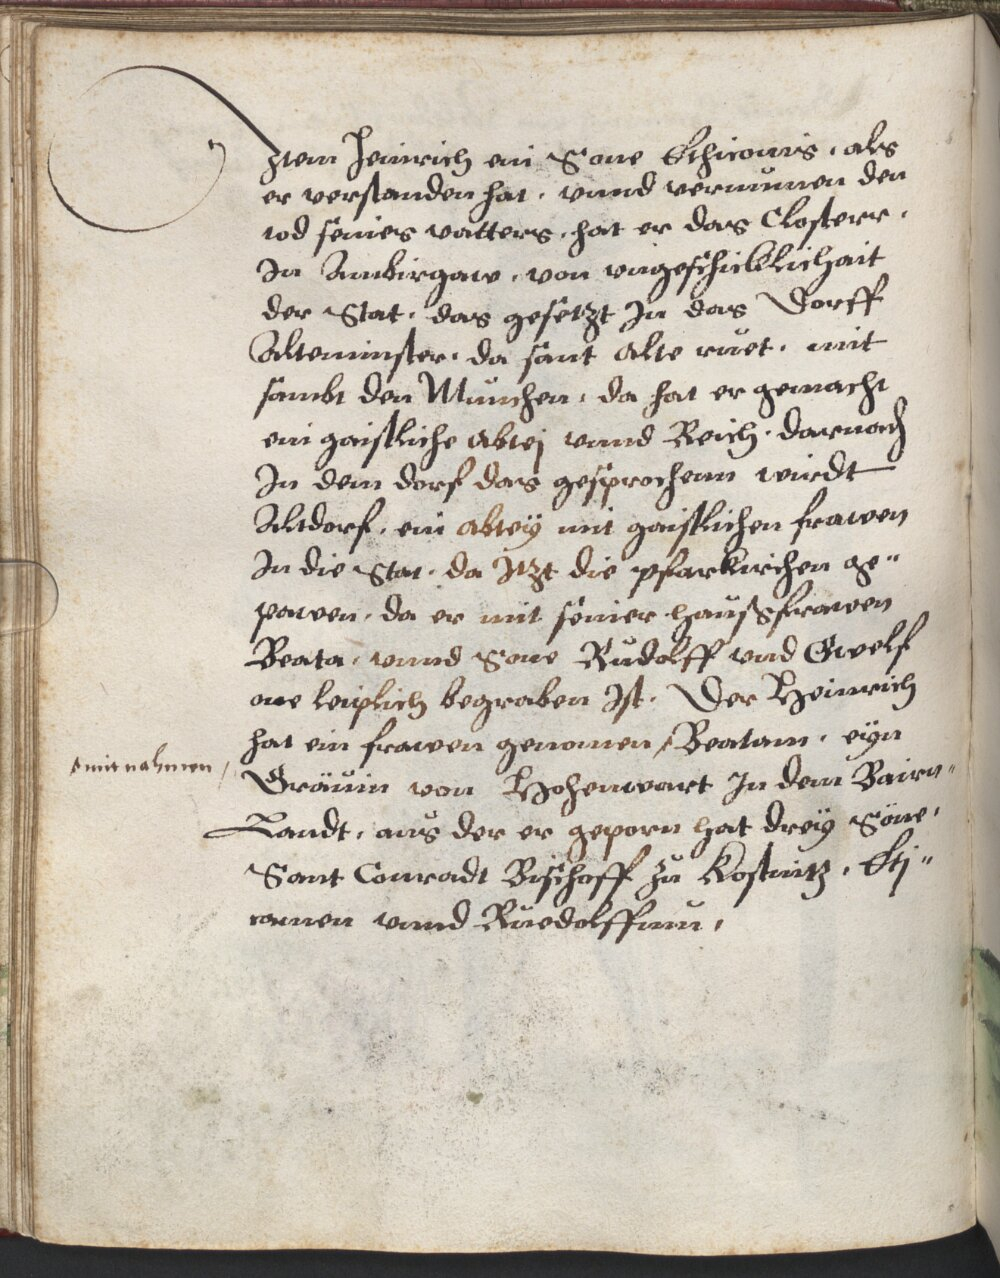 Item Heinrich ein Sone Ethiconis, als
er verstanden hat, vnnd vernumen den
tod seines vatters, hat er das Closterr,
In Ambirgaw, von vngeschicklichait
der Stat, das gesetzt In das Dorff
Alteminster, da sant Alte ruet, mit
sambt den Munchen, da hat er gemacht
ein gaistliche Abtej vnnd Reich, darnach
In dem dorf das gesprochenn wirdt
Altdorf, ein abtey mit gaistlichen frawen
In die Stat, da Itzt die pfarkirchen ge"
pawen, da er mit seiner haußfrawen
Beata, vnnd Sone Rudolff vnd Gwelf
one leiplich begraben Ist, Der Heinrich
hat ein frawen genomen, Beatam, eyn
mit nahmen,
Gräuin von Hohenwart In dem Bairn"
Landt, aus der er geporn hat drey Söne,
Sant Conradt Bischoff zu Kostnitz, Eti"
conen vnnd Ruedolffum,